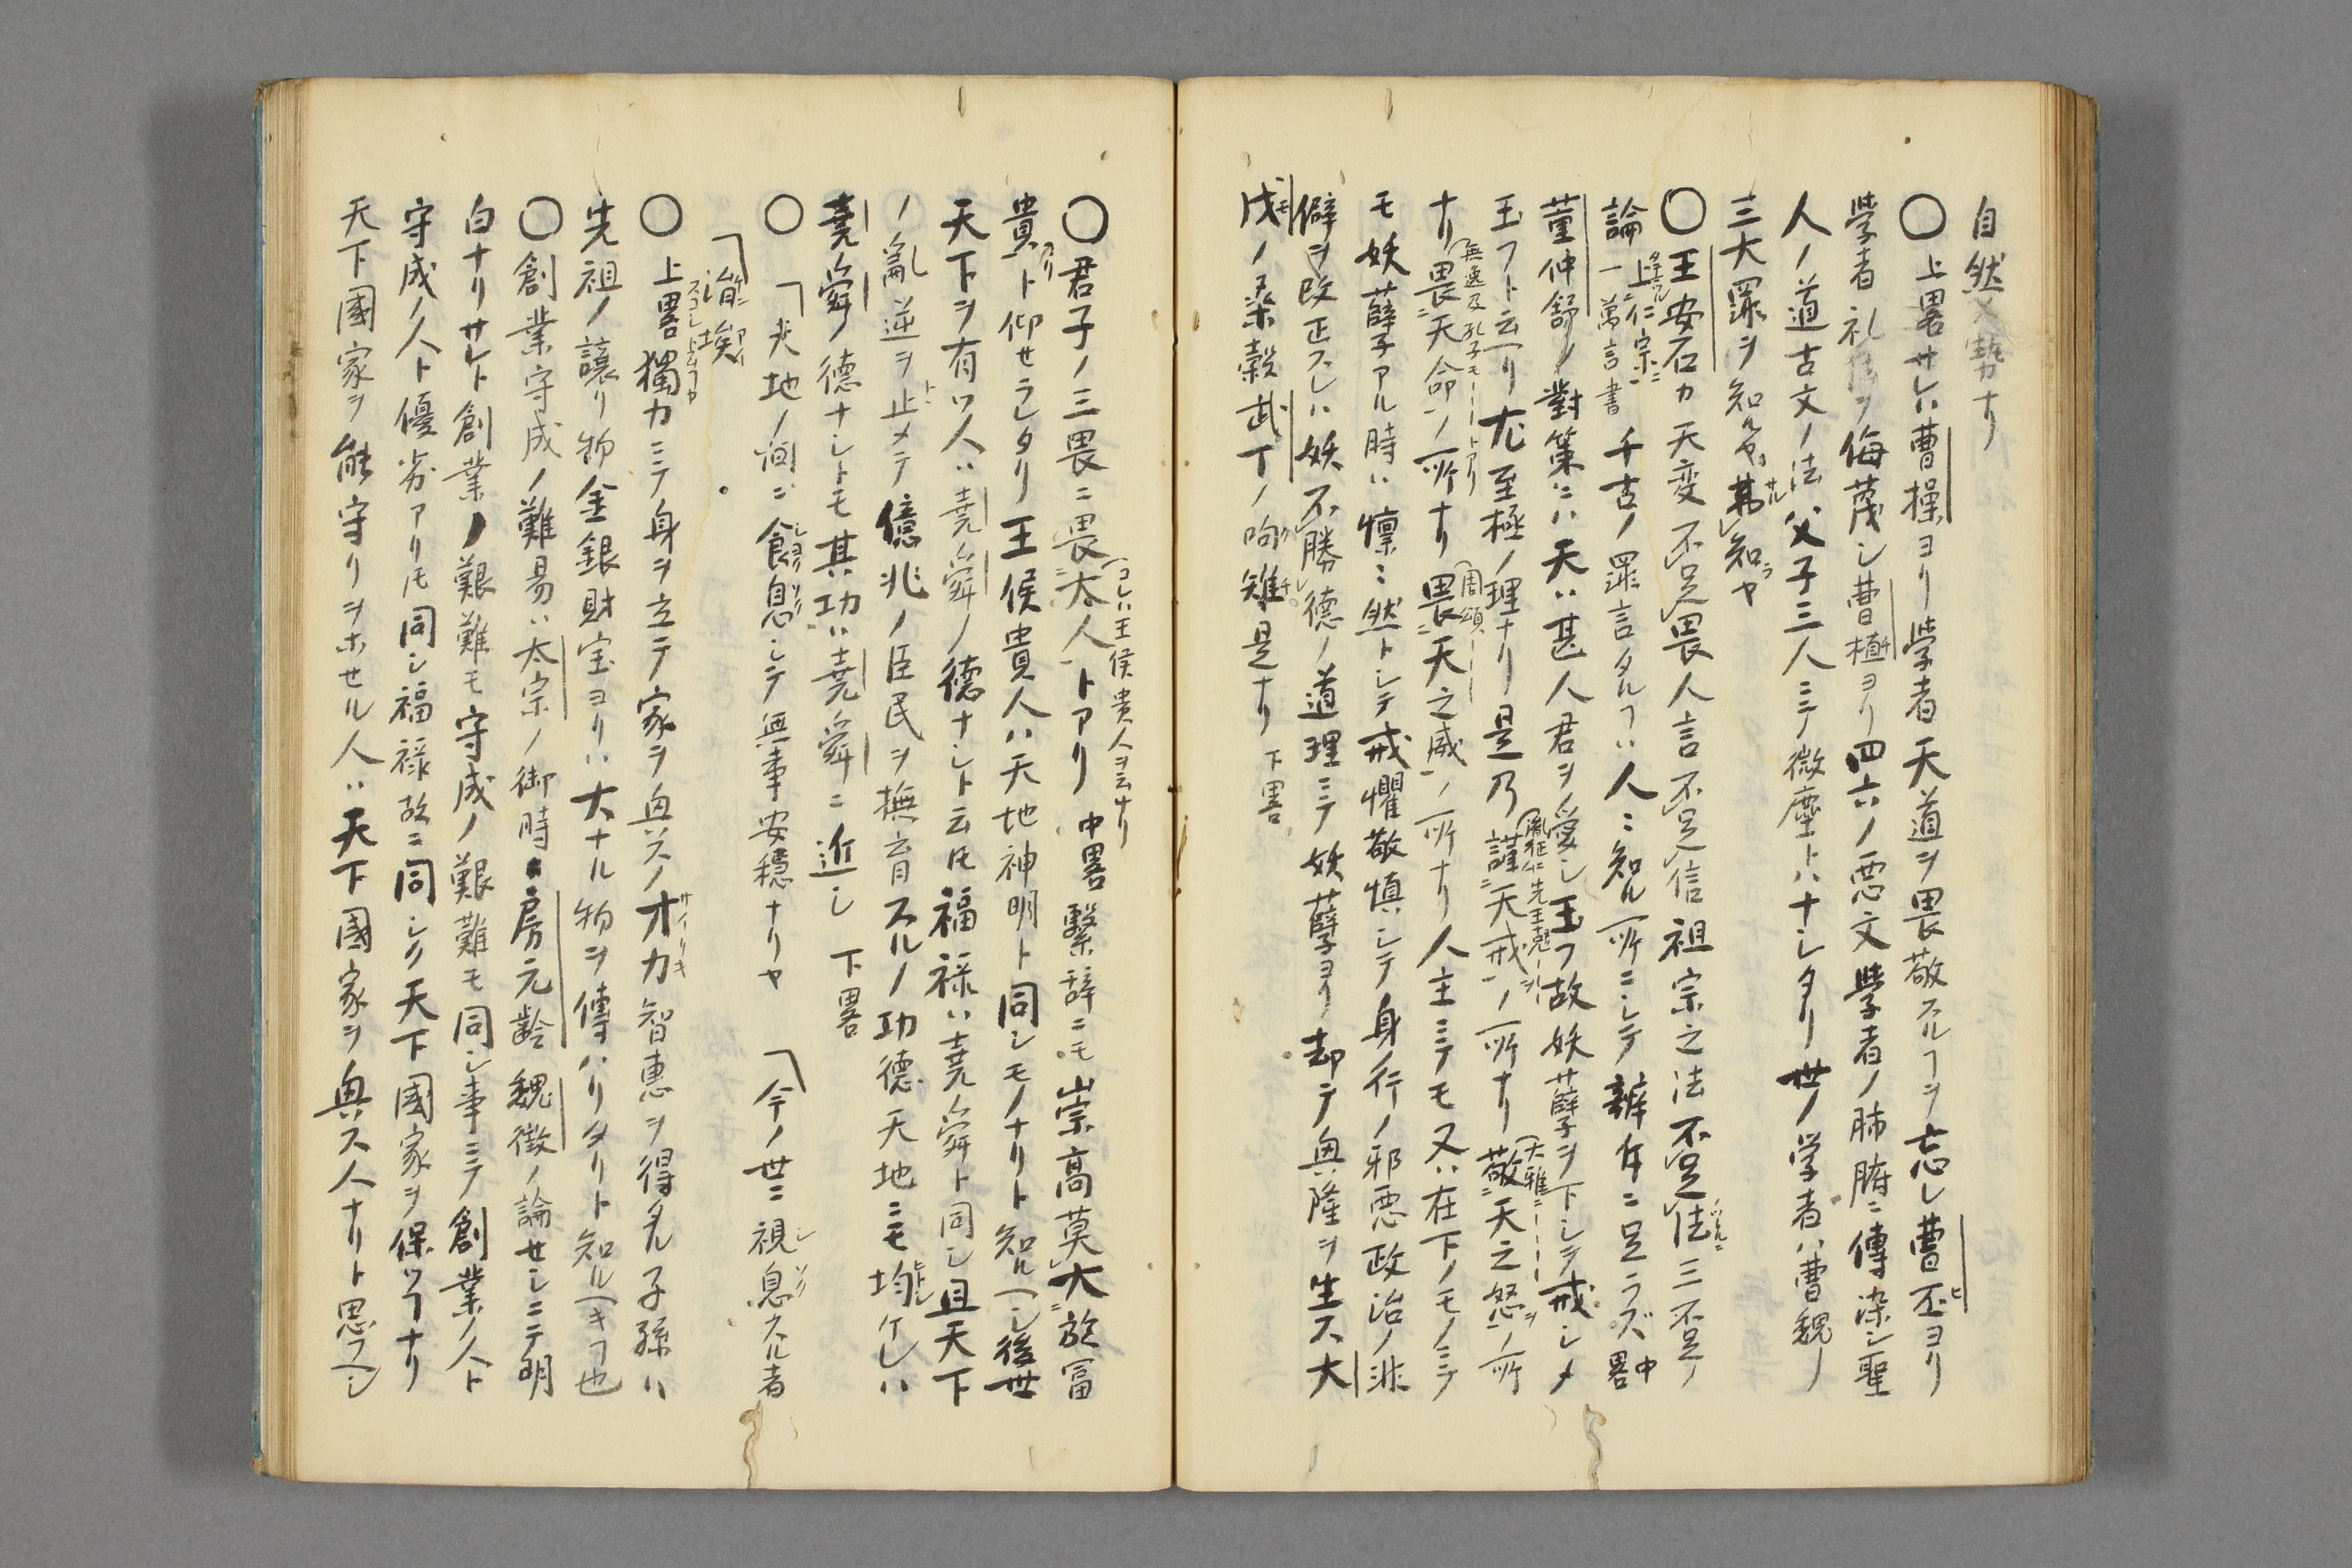 自然ノ勢ナリ
○上畧サレハ曹操ヨリ学者天道ヲ畏敬スルヿヲ忘レ曹丕ヨリ
学者礼ヲ侮蔑シ曹植ヨリ四六ノ悪文学者ノ肺腑ニ傳染シ聖
人ノ道古文ノ法父子三人ニテ微塵トハナシタリ世ノ学者ハ曹魏ノ
三大罪ヲ知ルヤ弗知ヤ
○王安石カ天変不足畏人言不足信祖宗之法不足法三不足ノ
論 上仁宗一萬言書 千古ノ罪言タルヿハ人ニ知ル所ニシテ辨ニ足ラズ中畧
董仲舒ノ對策ニハ天ハ甚人君ヲ愛シ玉フ故妖孽ヲ下シテ戒シメ
玉フト云ヘリ尤至極ノ理ナリ是乃 謹天戒ノ所ナリ 大雅ニ 敬天之怒ノ所
ナリ 無逸及孔子モートアリ 畏天命ノ所ナリ 周頌 畏天之威ノ所ナリ人主ニテモ又ハ在下ノモノニテ
モ妖孽アル時ハ懍ニ然トシテ戒懼敬慎シテ身ノ行ノ邪悪政治ノ非
僻ヲ改正スレハ妖不勝德ノ道理ニテ妖孽ヨリ却テ興隆ヲ生ス大
戊ノ桑穀武丁ノ雊雉是ナリ 下畧
○君子ノ三畏ニ畏大人トアリ コレハ王侯貴人ヲ云ナリ 中畧 繋辞ニモ崇高莫大於冨
貴ト仰セラレタリ王侯貴人ハ天地神明ト同シモノナリト知ルヘシ後世
天下ヲ有ツ人ハ堯舜ノ德ナシト云𪜈福禄ハ堯舜ト同シ且天下
ノ亂逆ヲ止メテ億兆ノ臣民ヲ撫育スルノ功德天地ニモ均ケレハ
堯舜ノ德ナシトモ其功ハ堯舜ニ近シ 下畧
○「天地ノ間ニ飲息シテ無事安穏ナリヤ 「今ノ世ニ視息スル者
「涓埃
○上畧獨力ニテ身ヲ立テ家ヲ興スノオ力智惠ヲ得タル子孫ハ
先祖ノ譲リ物金銀財宝ヨリハ大ナル物ヲ傳ハリタリト知ルヘキヿ也
○創業守成ノ難易ハ太宗ノ御時房元齢魏徴ノ論セシニテ明
白ナリサレト創業ノ艱難モ守成ノ艱難モ同シ事ニテ創業ノ人ト
守成ノ人ト優劣アリ𪜈同シ福禄故ニ同シク天下國家ヲ保ツヿナリ
天下國家ヲ能守リヲホセル人ハ天下國家ヲ興ス人ナリト思フヘシ